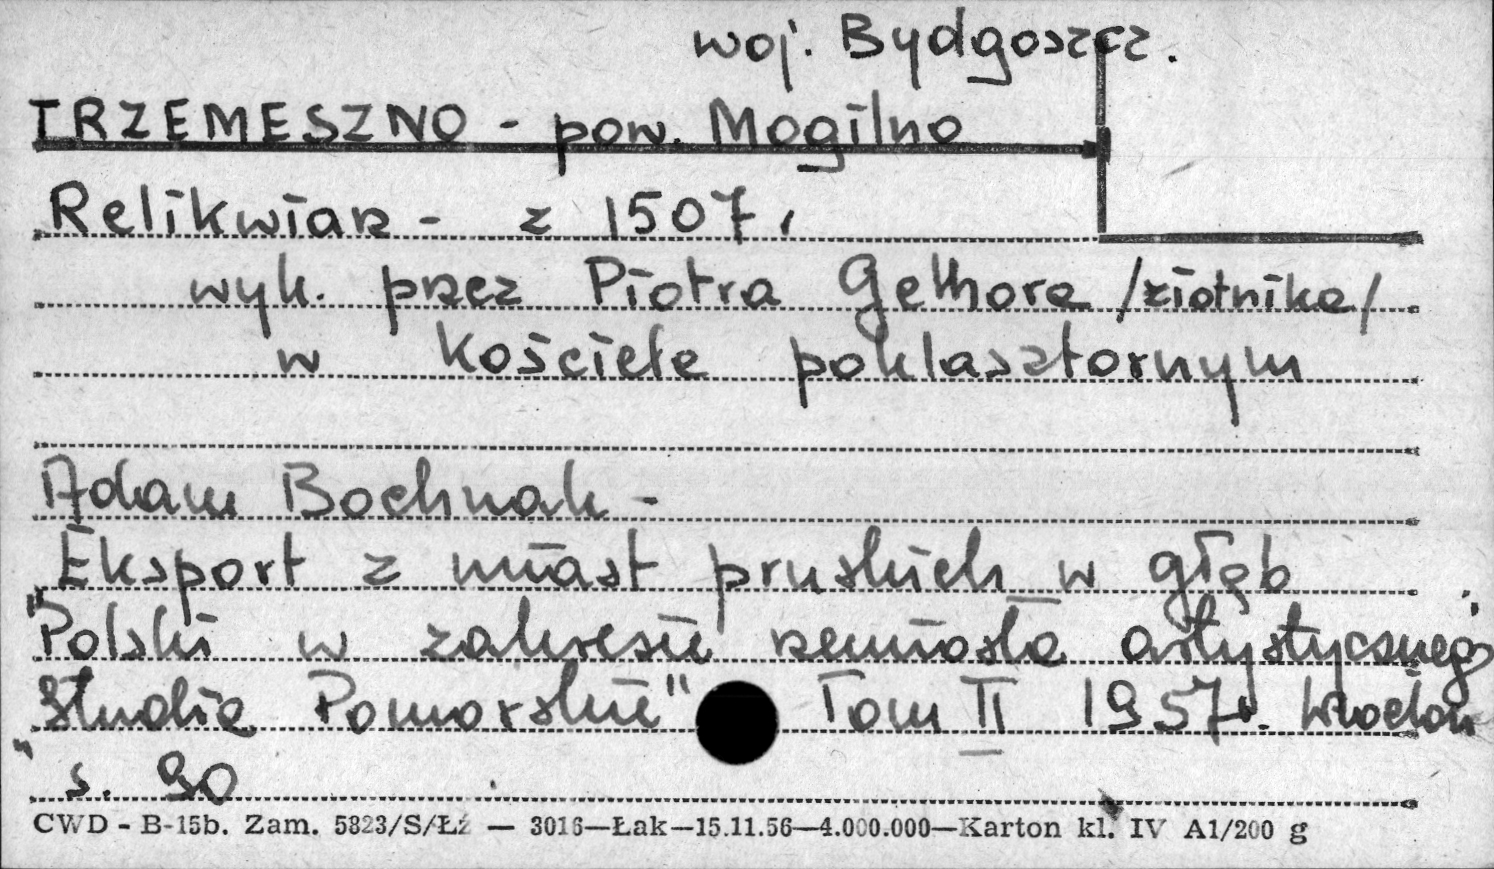 woj. Bydgoszcz.
TRZEMESZNO - pow. Mogilno
Relikwiarz - z 1507 r
wyk. przez Piotra Gelhora /złotnika/
w kościele poklasztornym
Adam Bochnak -
Eksport z miast pruskich w głąb
"Polski w zakresie rzemiosła artystycznego"
Studia Pomorskie" Tom II 1957 r. Wrocław
" s. 90
CWD - B-15b. Zam. 5823/S/Łź — 3016—Łak—15.11.56—4.000.000—Karton kl. IV A1/200 g